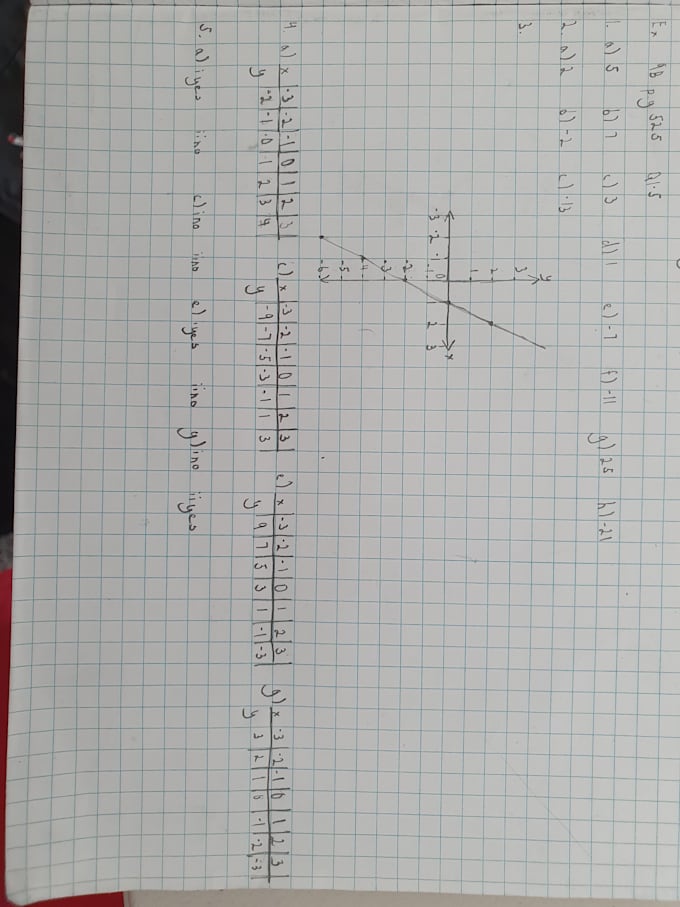 Ex 9B pg 525 Q1-5
1. a) 5 b) 7 c) 3 d) 1 e) -7 f) -11 g) 25 h) -21
2. a) 2 b) -2 c) -13
3.
y
3
2
1
-3 -2 -1 0 1 2 3 x
-1
-2
-3
-4
-5
-6
4 a) x -3 -2 -1 0 1 2 3
y -2 -1 0 1 2 3 4
c) x -3 -2 -1 0 1 2 3
y -9 -7 -5 -3 -1 1 3
e) x -3 -2 -1 0 1 2 3
y 9 7 5 3 1 -1 -3
g) x -3 -2 -1 0 1 2 3
y 3 2 1 0 -1 -2 -3
5. a) i yes ii no c) i no ii no e) i yes ii no g) i no ii yes